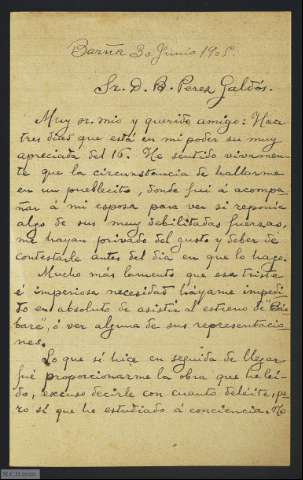 Barña 30 Junio 1905.
Sr. D. B. Perez Galdós.
Muy sr. mio y querido amigo: Hace
tres dias que está en mi poder su muy
apreciada del 16. He sentido vivamen-
te que la circunstancia de hallarme
en un pueblecito, donde fuí á acompa-
ñar á mi esposa para ver si reponía
algo de sus muy debilitadas fuerzas,
me hayan privado del gusto y deber de
contestarle antes del dia en que lo hago.
Mucho más lamento que esa triste
é imperiosa necesidad háyame impedi-
do en absoluto de asistir al estreno de "Bár-
bara", ó ver alguna de sus representacio-
nes.
Lo que sí hice en seguida de llegar
fué proporcionarme la obra que he leí-
do, excuso decirle con cuanto deleite, pe-
ro sí que he estudiado á conciencia. He